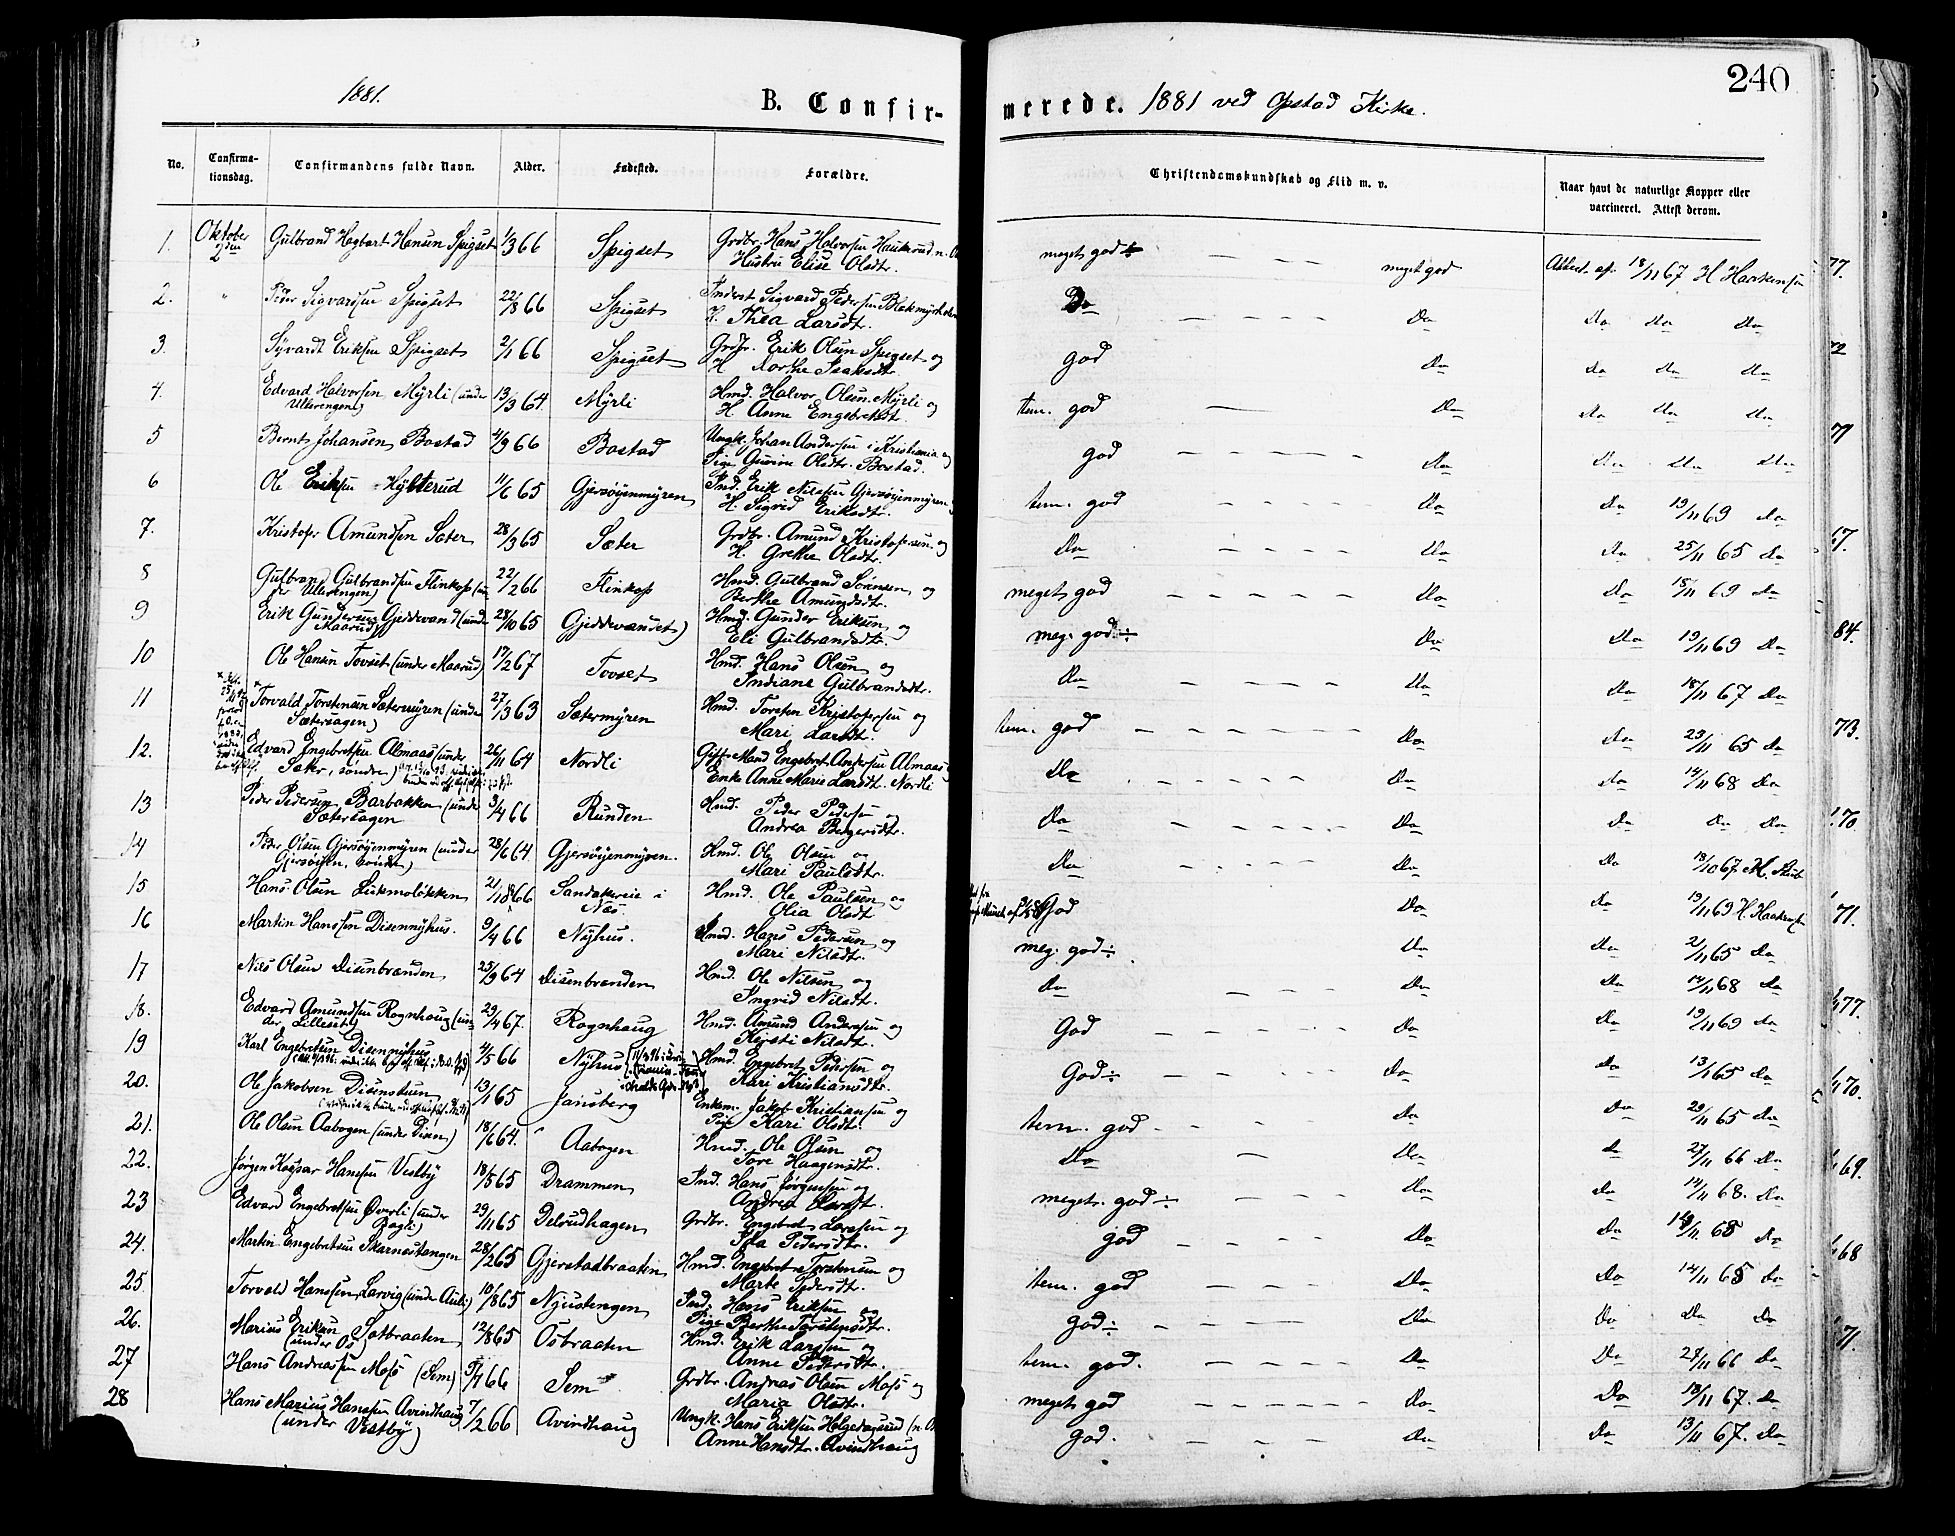 240
1881.
B. Confir-
merede. 1881 ved Opstad Kirke.
No.
Confirma-
tionsdag.
Confirmandens fulde Navn.
Alder.
Fødested.
Forældre.
Christendomskundskab og Flid m. v.
Naar havt de naturlige Kopper eller
vaccineret. Attest derom.
1. Oktober 2den Gulbrand Hagbart Hansen Spigset 1/3 66 Spigset Grdbr. Hans Halvorsen
Hustru Elise Olsdtr. meget god meget god Attest af 18/11 67 H Haakensen
2. " Peder Sigvardsen Spigset 22/8 66 Spigset Inderst Sigvard Pedersen
H. Thea Larsdtr. Do Do Do Do Do
3. Syvardt Eriksen Spigset 2/1 66 Spigset Grdbr. Erik Olsen Spigset og
H. Dorthe Isaksdtr. god Do Do Do Do
4. Edvard Halvorsen Myrli (under
Ullerengen) 13/3 64 Myrli Hmd. Halvor Olsen Myrli og
H. Anne Engebretsdt. tem. god Do Do Do Do
5 Bernt Johansen Bostad 4/9 66 Bostad Ungk. Johan Andersen i Kristiania og
Pige Gurine Olsdtr. Bostad. god Do Do Do Do
6 Ole Eriksen Hytterud 11/6 65 Gjersøyenmyren Ind. Erik Nilssen Gjersøyenmyren
H. Sigrid Eriksdtr. tem. god Do Do 19/11 69 Do
7. Kristofer Amundsen Sæter 28/3 65 Sæter Grdbr. Amund Kristofersen og
H. Grethe Olsdtr. Do Do Do 25/11 65 Do
8 Gulbrand Gulbrandsen Flinkop (un
der Ullerengen) 22/2 66 Flinkop Hmd. Gulbrand Sørensen og
Berthe Amundsdtr. meget god Do Do 18/11 69 Do
9 Erik Gundersen Gjeddevand (under
Maarud) 28/10 65 Gjeddevandet) Hmd. Gunder Eriksen og
Eli Gulbrandsdtr. meg. god÷ Do Do 19/11 69 Do
10 Ole Hansen Tovset (under Maarud) 17/2 67 Tovset Hmd. Hans Olsen og
Indiane Gulbrandsdtr. Do Do Do 18/11 67 Do
11 Torvald Torstensen Sætermyren (under
Sætersagen) 27/3 63 Sætermyren Hmd. Torsten Kristofersen og
Mari Larsdt. tem. god Do Do 23/11 65 Do
12. Edvard Engebretsen Almaas (under
Sæter, søndre) 26/11 64 Nordli Gift Mand Engebret Andersen Almaas
Enke Anne Marie Larsdt. Nordli Do Do Do 14/11 68 Do
13 Peder Pedersen Barbakken (under
Sætersagen 3/4 66 Runden Hmd. Peder Pedersen og
Andrea Birgersdtr. Do Do Do Do Do
14 Peder Olsen Gjersøyenmyren (under
Gjersøyen, Evinde) 28/6 64 Gjersøyenmyren. Hmd. Ole Olsen og
Mari Paulsdtr. Do Do Do 18/10 67
15 Hans Olsen Lukmoløkken 21/1 66 Sandakereie i
Næs Hmd. Ole Paulsen og
Olia Olsdt God Do Do 19/11 69 H. Haakensen
16 Martin Hanssen Disennyhus. 9/4 66 Nyhus. Hmd. Hans Pedersen og
Mari Nilsdtr. meg. god÷ Do Do 2/11 65 Do
17 Nils Olsen Disenbrænden 25/9 64 Disenbrænden Hmd. Ole Nilsen og
Ingrid Nilsdtr. Do Do Do 14/11 68 Do
18. Edvard Amundsen Rognhaug (un
der Lilleset) 23/4 67. Rognhaug Hmd. Amund Andersen og
Kirsti Nilsdt. God Do Do 19/11 69 Do
19 Karl Engebretsen Disennyhus 4/5 66 Nyhus Hmd. Engebret Pedersen og
Kari Kristiansdtr. God÷ Do Do 13/11 65 Do
20. Ole Jakobsen Disenstuen 13/1 65 Jansberg Enkem. Jakob Kristiansen og
Pige Kari Olsdt. tem. god Do Do 29/11 65 Do
21. Ole Olsen Aabogen (under Disen) 18/6 64. Aabogen Hmd. Ole Olsen og
Tore Haagensdtr. Do Do Do 27/11 66 Do
22. Jørgen Kasper Hanssen Vestby 18/5 65 Drammen Ind. Hans Jørgensen og
Andrea Larsdt. meget god÷ Do Do 14/11 68. Do
23 Edvard Engebretsen Øverli (under
Bagli) 29/11 65 Delrudhagen Grdbr. Engebret Larssen og
Ida Pedersdtr. god Do Do 14/11 68 Do
24. Martin Engebretsen Skarnestangen 28/2 65 Gjerstadbraaten Hmd. Engebret Torstensen og
Marte Pedersdt. tem. god Do Do 14/11 68 Do
25. Torvald Hanssen Larvig (under Auli) 10/8 65 Nyustengen Ind. Hans Eriksen og
Pige Berthe Torstensdtr. god÷ Do Do Do Do
26. Marius Eriksen Sotbraaten
(under Os) 12/8 65 Osbraaten Hmd. Erik Larssen og
Anne Pedersdtr. tem. god. Do Do 27/11 66 Do
27 Hans Andreassen Moss (Sem) 5/4 66 Sem Grdbr. Andreas Olsen Moss og
Maria Olsdtr. meget god Do Do 13/11 67. Do
28 Hans Marius Hanssen Avindhaug
(under Vestby) 7/2 66 Avindhaug Ungk. Hans Eriksen
Anne Hansdtr. Avindhaug god. Do Do 13/11 67. Do
77.
72
71
67.
84.
73.
70
71.
77.
70.
69.
68
71.